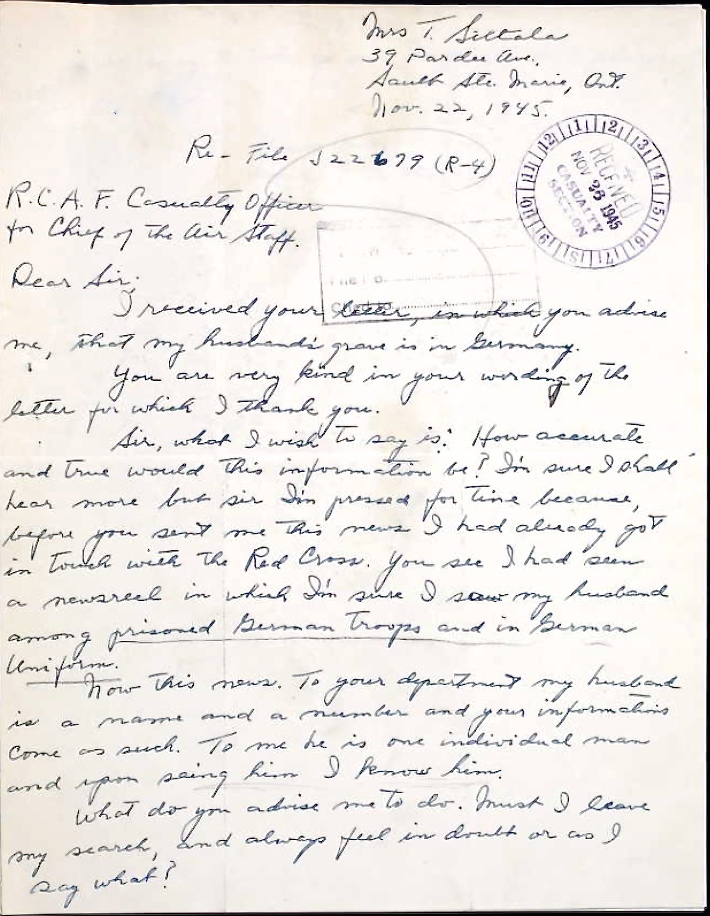 Mrs T. Siltala
39 Pardee Ave.
Sault Ste. Marie, Ont.
Nov. 22, 1945.
Re - File J22679 (R-4)
12 1 2 3 4 5 6 7 8 9 10 11
RECEIVED
NOV 28 1945
CASUALTY
SECTION
R.C.A.F. Casualty Officer
for Chief of the Air Staff.
Dear Sir;
I received your letter, in which you advise
me, that my husband's grave is in Germany.
You are very kind in your wording of the
letter for which I thank you.
Sir, what I wish to say is: How accurate
and true would this information be? I'm sure I shall
hear more but sir I'm pressed for time because,
before you sent me this news I had already got
in touch with the Red Cross. You see I had seen
a newsreel in which I'm sure I saw my husband
among prisoned German Troops and in German
Uniform.
Now this news. To your department my husband
is a name and a number and your informations
come as such. To me he is one individual man
and upon seing him I know him.
What do you advise me to do. Must I leave
my search, and always feel in doubt or as I
say what?